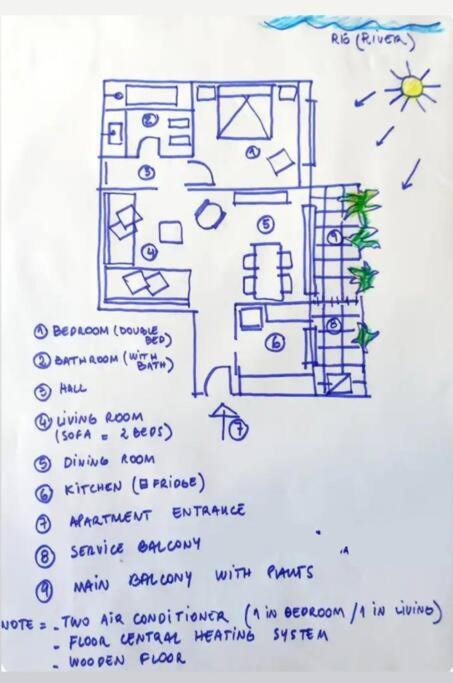 RÍO (RIVER)
2
1
3
5
9
4
8
6
7
1 BEDROOM (DOUBLE
BED)
2 BATHROOM (WITH
BATH)
3 HALL
4 LIVING ROOM
(SOFA = 2 BEDS)
5 DINING ROOM
6 KITCHEN ( FRIDGE)
7 APARTMENT ENTRANCE
8 SERVICE BALCONY
9 MAIN BALCONY WITH PLANTS
NOTE = - TWO AIR CONDITIONER (1 IN BEDROOM / 1 IN LIVING)
- FLOOR CENTRAL HEATING SYSTEM
- WOODEN FLOOR